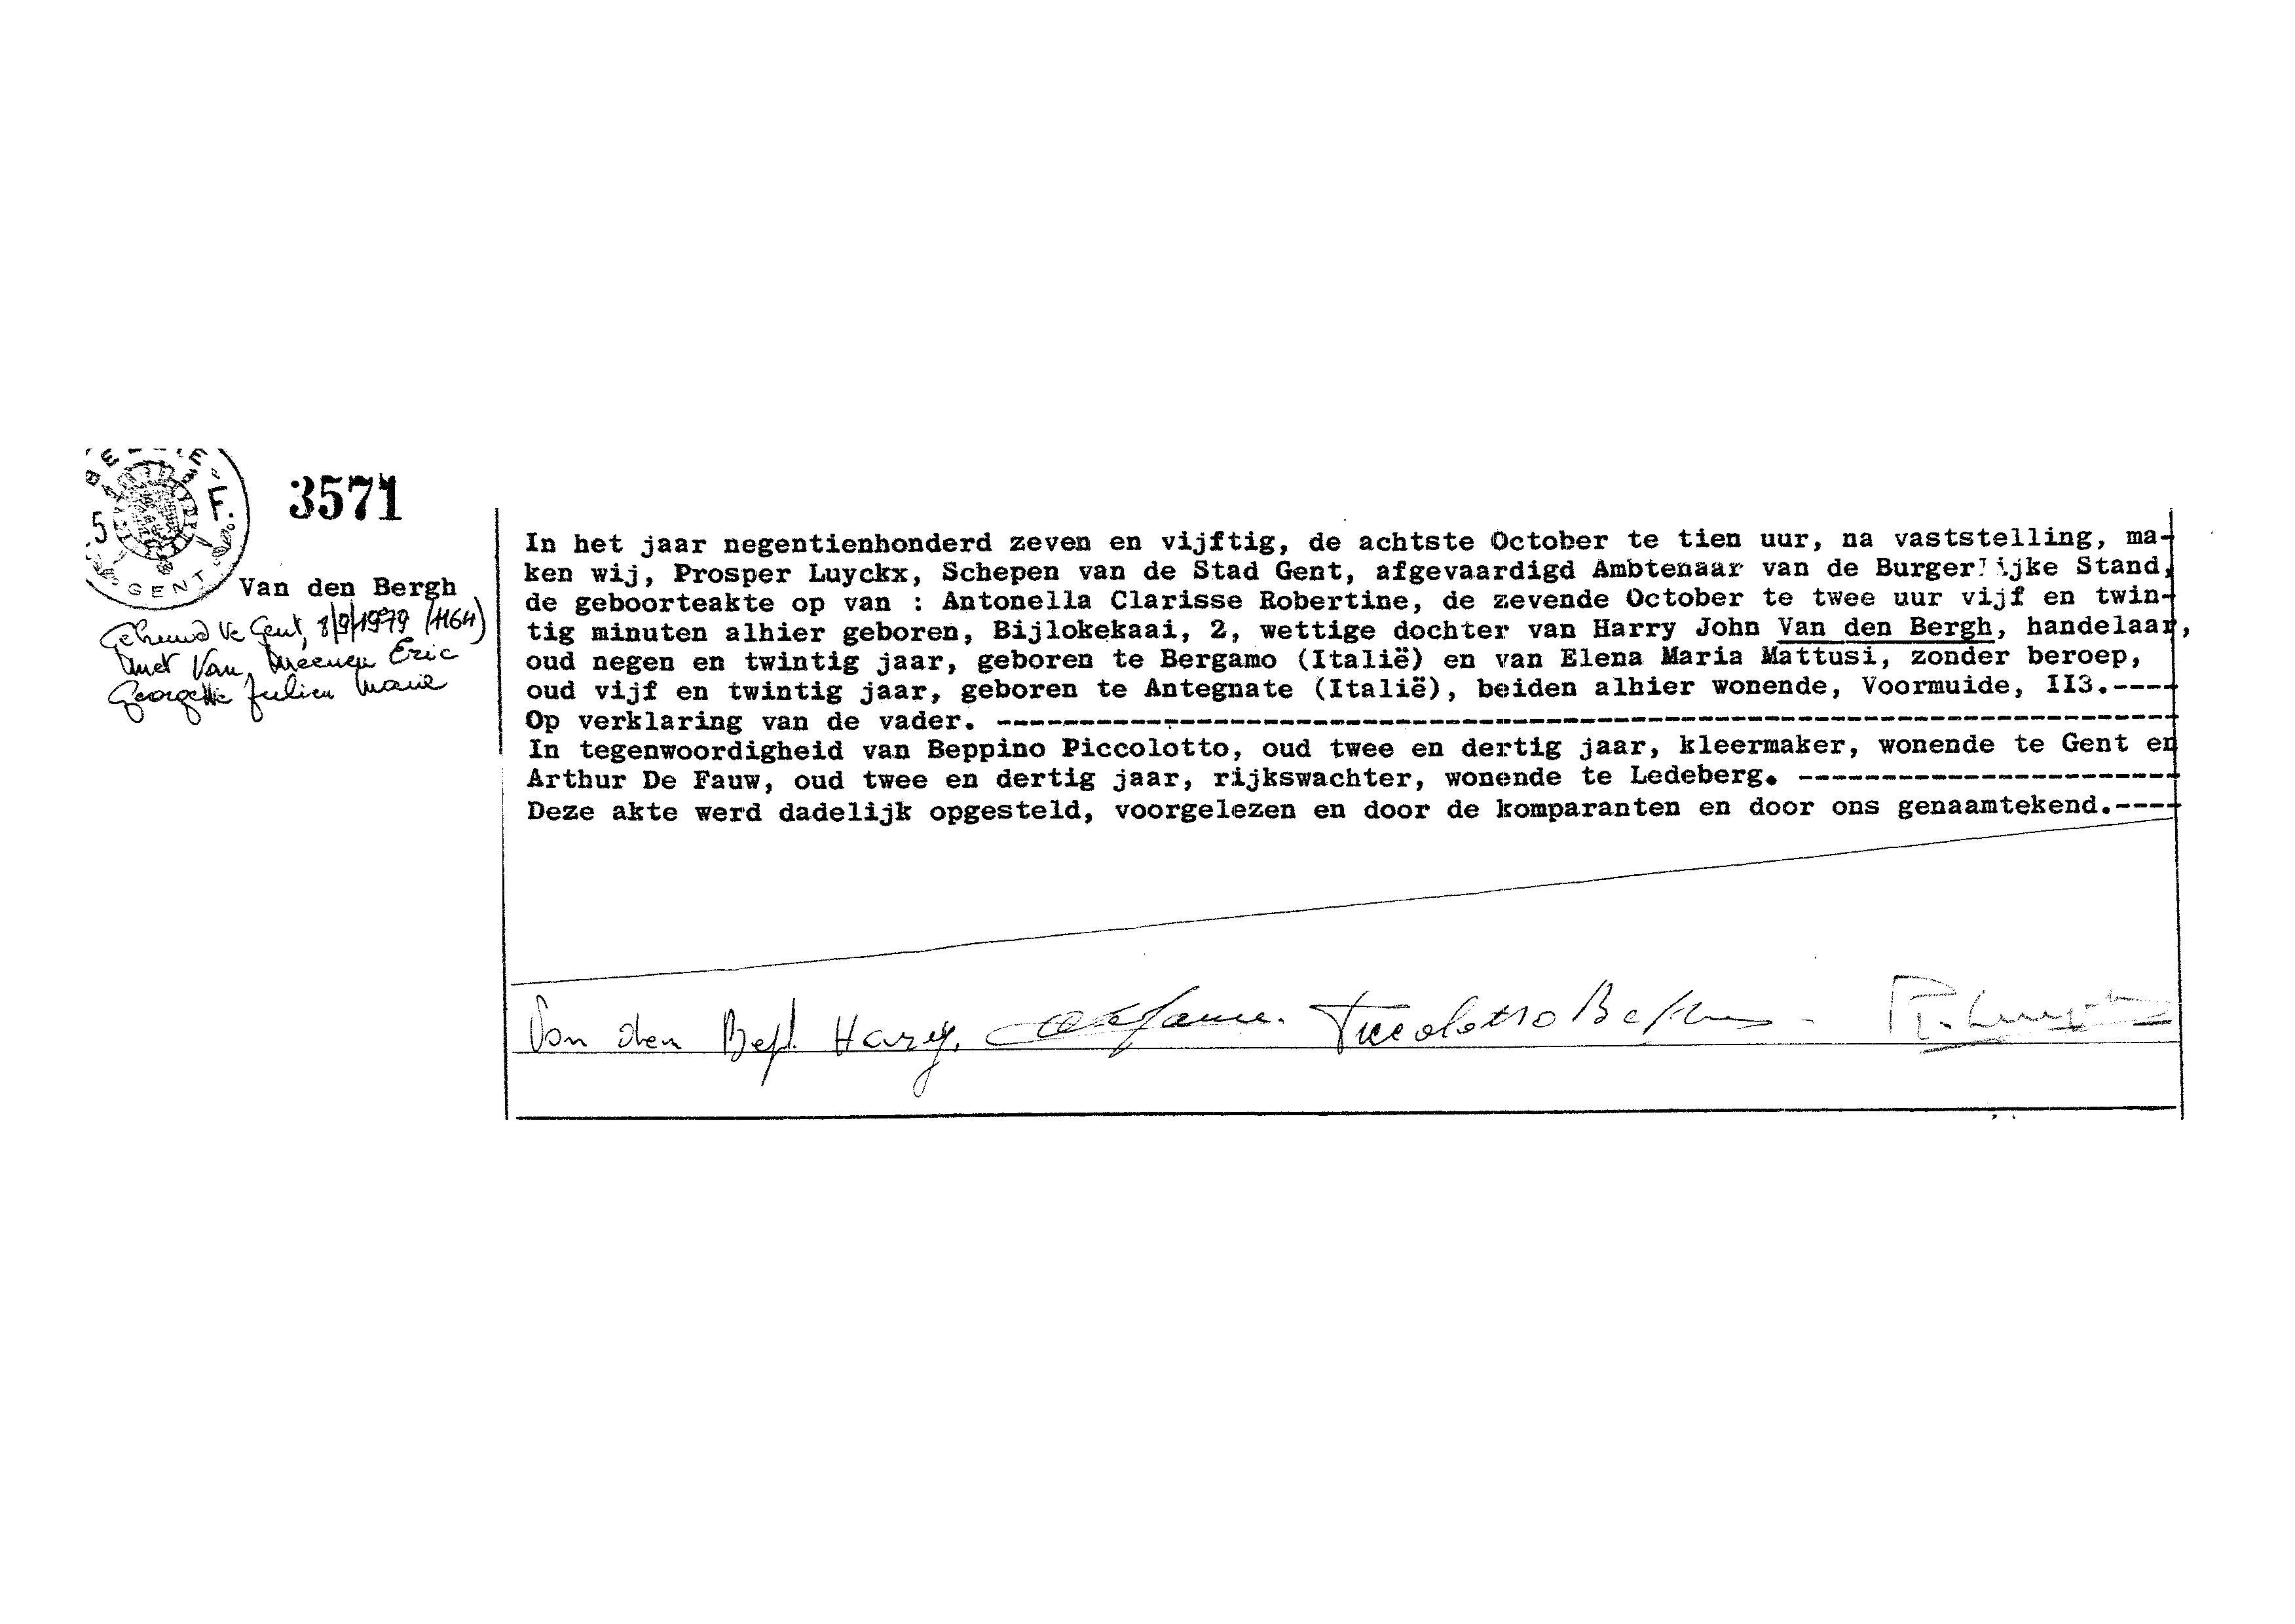 BELGIE
5 F.
GENT
3571
Van den Bergh
Gehuwd te Gent, 8/9/1979 (1164)
met Van Meenen Eric
Georgette Julien Marie
In het jaar negentienhonderd zeven en vijftig, de achtste October te tien uur, na vaststelling, ma-
ken wij, Prosper Luyckx, Schepen van de Stad Gent, afgevaardigd Ambtenaar van de Burgerlijke Stand,
de geboorteakte op van : Antonella Clarisse Robertine, de zevende October te twee uur vijf en twin-
tig minuten alhier geboren, Bijlokekaai, 2, wettige dochter van Harry John Van den Bergh, handelaar,
oud negen en twintig jaar, geboren te Bergamo (Italië) en van Elena Maria Mattusi, zonder beroep,
oud vijf en twintig jaar, geboren te Antegnate (Italië), beiden alhier wonende, Voormuide, II3.----
Op verklaring van de vader. ----------------------------------------------------------------------
In tegenwoordigheid van Beppino Piccolotto, oud twee en dertig jaar, kleermaker, wonende te Gent en
Arthur De Fauw, oud twee en dertig jaar, rijkswachter, wonende te Ledeberg. -----------------------
Deze akte werd dadelijk opgesteld, voorgelezen en door de komparanten en door ons genaamtekend.----
Van den Bergh Harry. Piccolotto